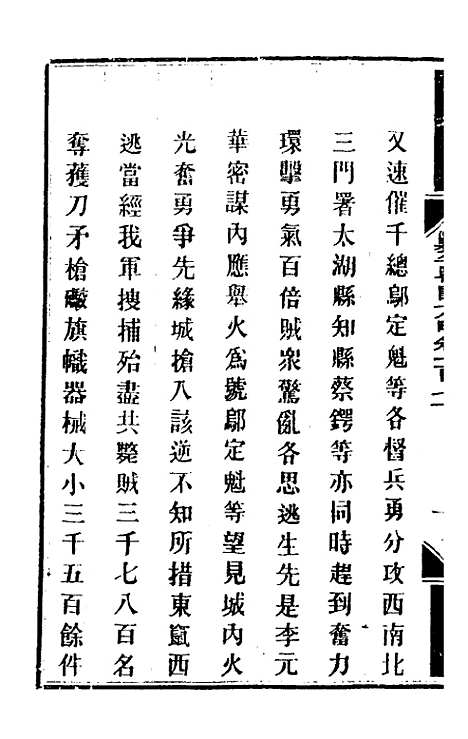 又速催千總鄔定魁等各督兵勇分攻西南北
三門署太湖縣知縣蔡鍔等亦同時趕到奮力
環擊勇氣百倍賊眾驚亂各思逃生先是李元
華密謀內應舉火爲號鄔定魁等望見城內火
光奮勇爭先緣城搶入該逆不知所措東竄西
逃當經我軍搜捕殆盡共斃賊三千七八百名
奪獲刀矛槍礮旗幟器械大小三千五百餘件